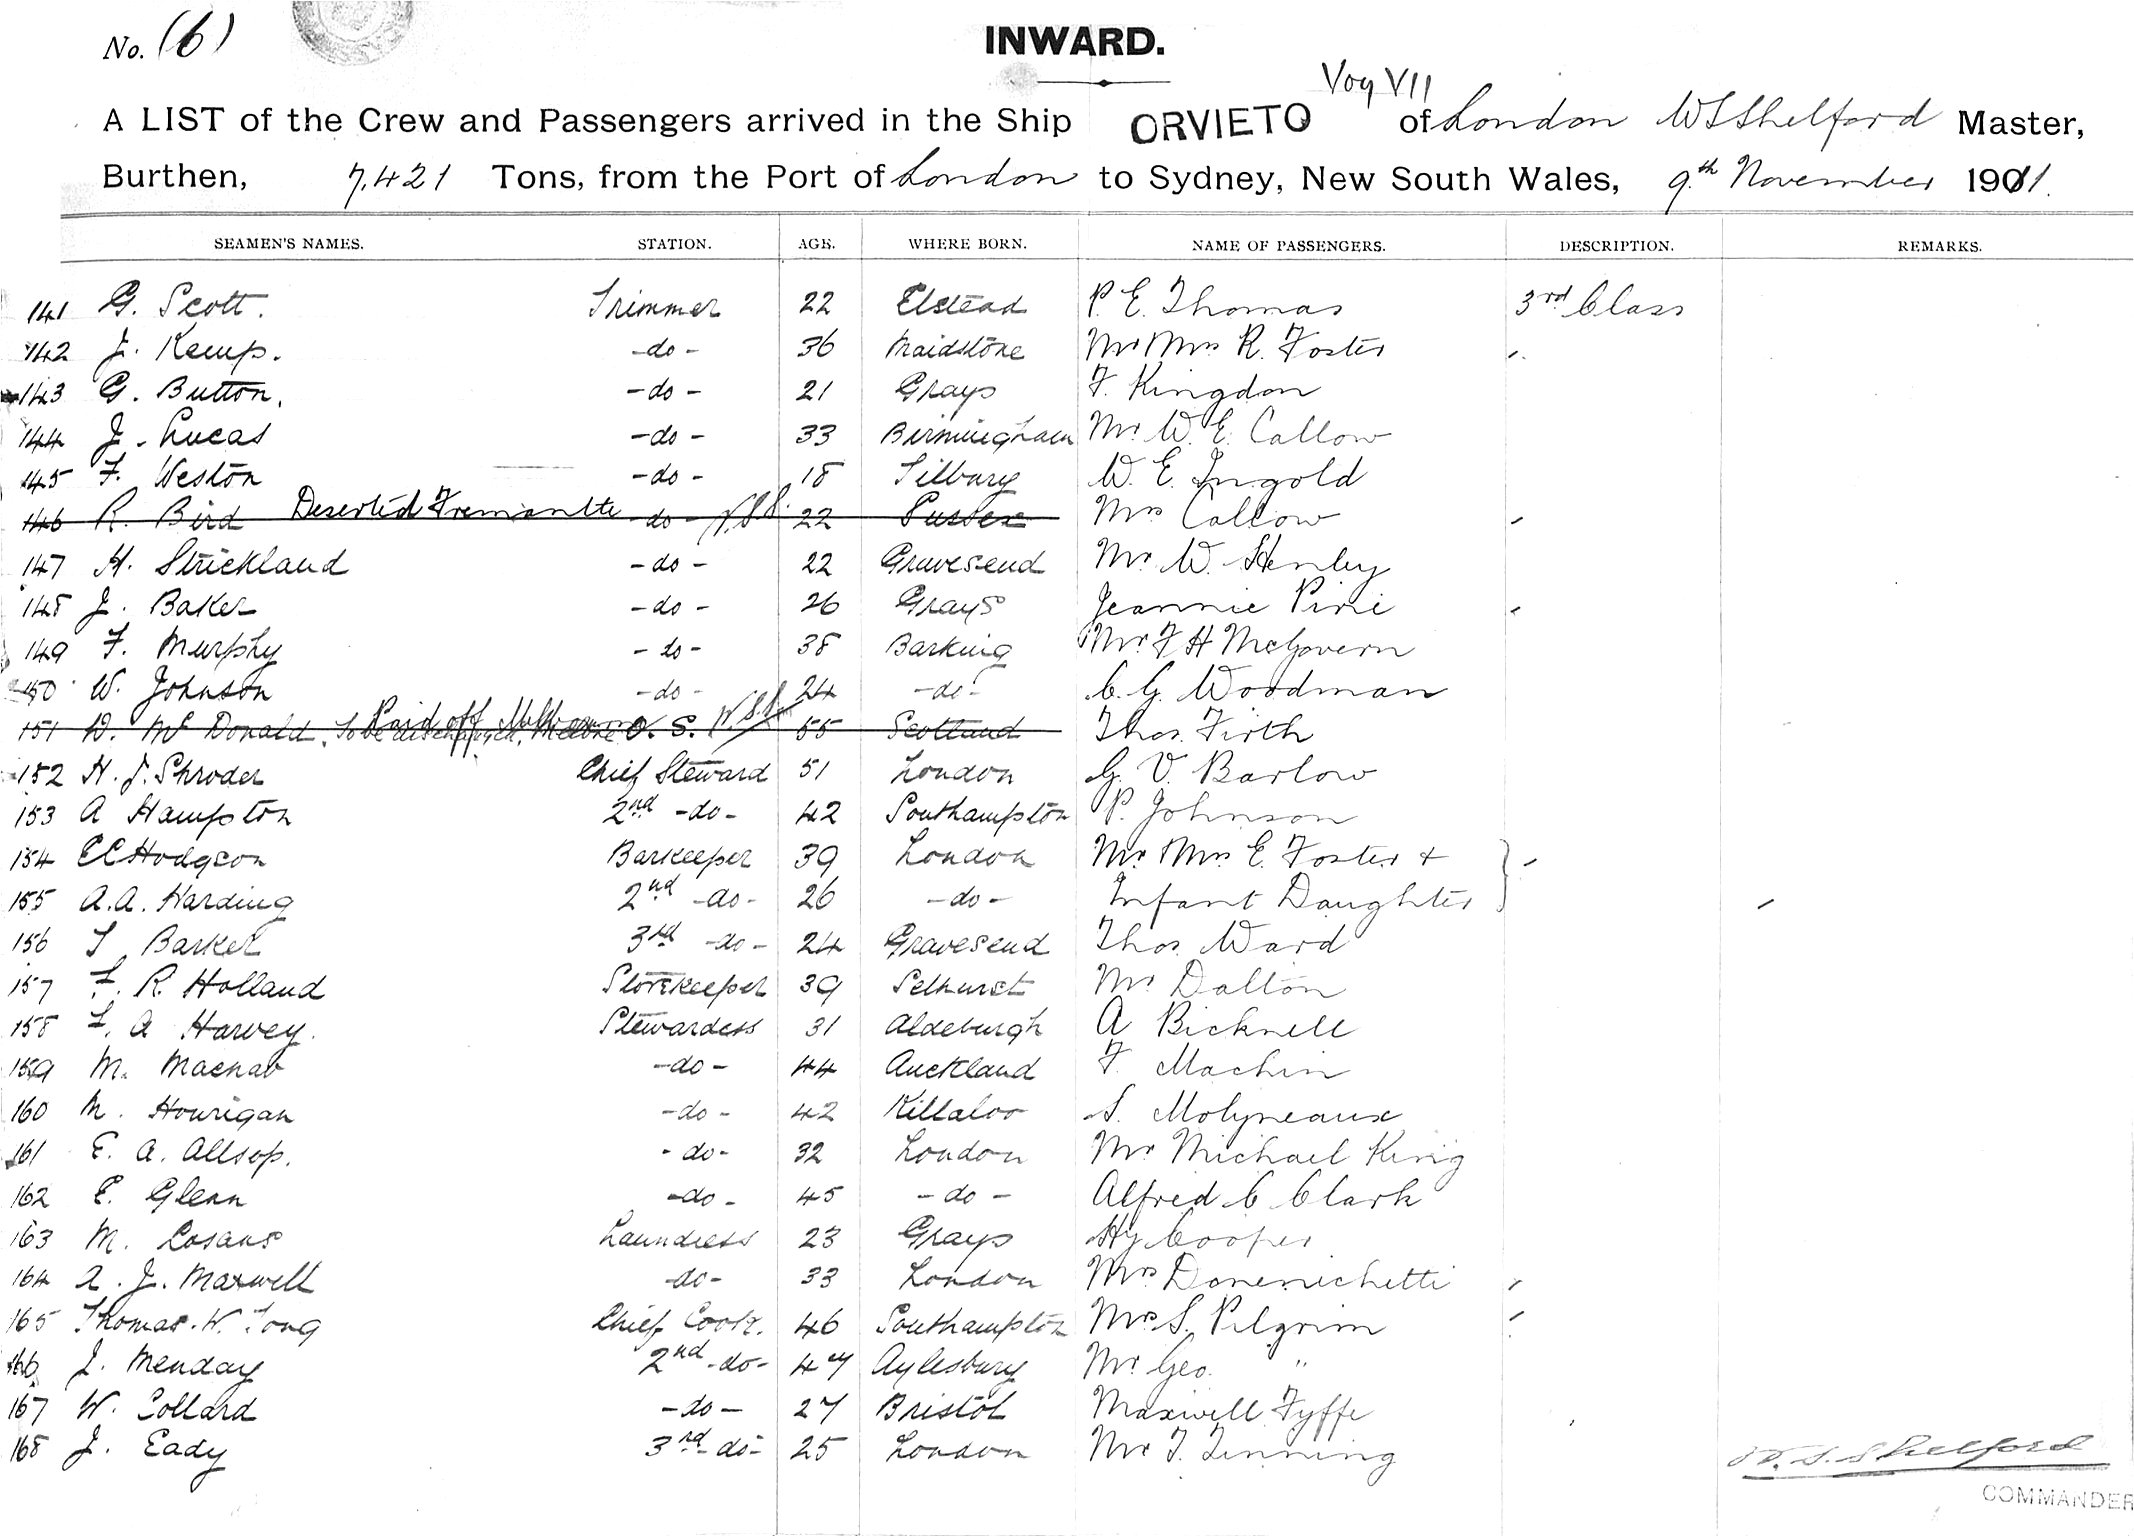 No. (6)
INWARD.
Voy VII
A LIST of the Crew and Passengers arrived in the Ship ORVIETO of London W S Shelford Master,
Burthen, 7,421 Tons, from the Port of London to Sydney, New South Wales, 9th November 1911.
SEAMEN'S NAMES. STATION. AGE. WHERE BORN. NAME OF PASSENGERS. DESCRIPTION. REMARKS.
141 G. Scott. Trimmer 22 Elstead P. E. Thomas 3rd Class
142 J. Kemp. -do- 36 Maidstone Mr Mrs R. Foster "
143 G. Button. -do- 21 Grays F. Kingdon
144 J. Lucas -do- 33 Birmingham Mr. W. E. Callow
145 F. Weston -do- 18 Tilbury W. E. Ingold
146 R. Bird Deserted Fremantle do - 22 Sussex Mrs Callow "
147 H. Strickland -do- 22 Gravesend Mr. W. Henley
148 J. Baker -do- 26 Grays Jeannie Pirie "
149 F. Murphy -do- 38 Barking Mr. F H McGovern
150 W. Johnson -do- 24 -do- C. G. Woodman
151 D. McDonald. To be discharged, Paid off Melbourne O. S. 55 Scotland Thos. Firth
152 H. J. Shroder Chief Steward 51 London G. V. Barlow
153 A Hampton 2nd -do- 42 Southampton P. Johnson
154 E C Hodgson Barkeeper 39 London Mr. Mrs E. Foster + "
155 A. A. Harding 2nd -do- 26 -do- Infant Daughter
156 T Barker 3rd -do- 24 Gravesend Thos. Ward
157 F. R. Holland Storekeeper 39 Selhurst Mr Dalton
158 F. A Harvey. Stewardess 31 Aldeburgh A Bicknell
159 M. Macnab -do- 44 Auckland F. Machin
160 M. Hourigan -do- 42 Killaloo S. Molyneaux
161 E. A. Allsop. -do- 32 London Mr Michael King
162 E. Glenn -do- 45 -do- Alfred C Clark
163 M. Cosans Laundress 23 Grays Hy Cooper
164 A. J. Maxwell -do- 33 London Mrs Domenichetti "
165 Thomas. W. Tong Chief Cook. 46 Southampton Mrs S. Pilgrim "
166 J. Menday 2nd -do- 47 Aylesbury Mr Geo. "
167 W. Collard -do- 27 Bristol Maxwell Fyffe
168 J. Eady 3rd -do- 25 London Mr T. Tenning
W. S. Shelford
COMMANDER